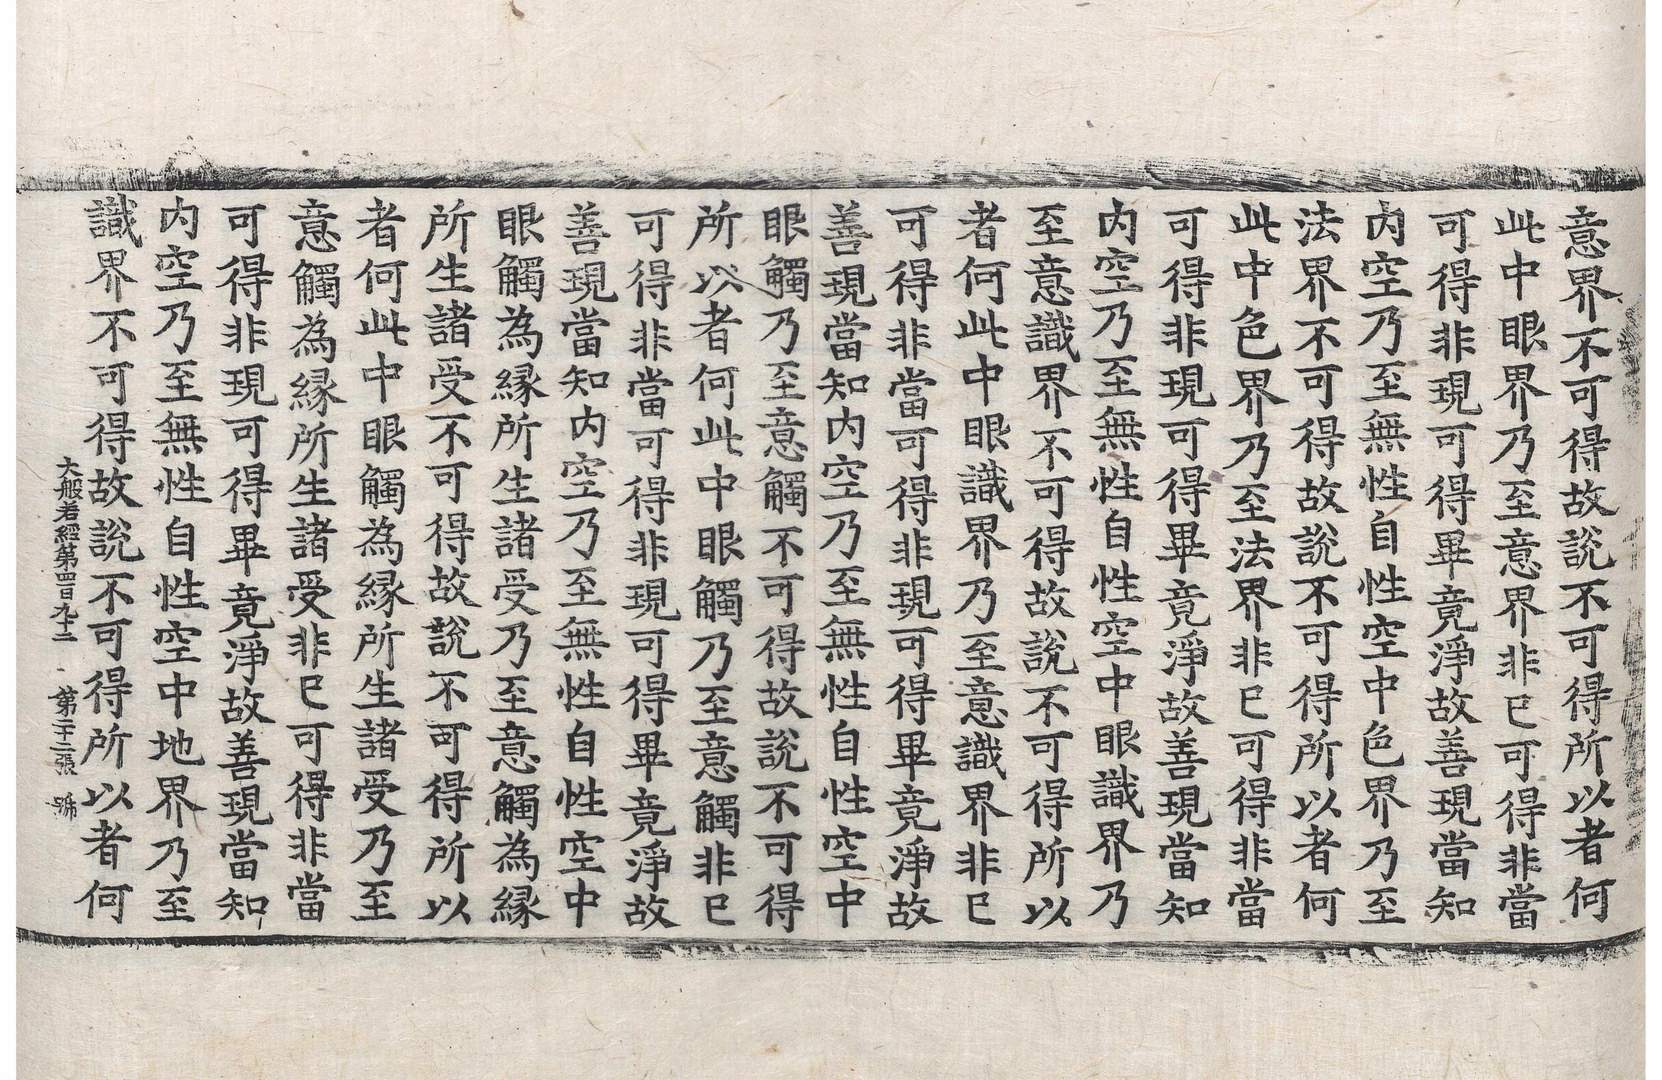 意界不可得故說不可得所以者何
此中眼界乃至意界非已可得非當
可得非現可得畢竟淨故善現當知
内空乃至無性自性空中色界乃至
法界不可得故說不可得所以者何
此中色界乃至法界非已可得非當
可得非現可得畢竟淨故善現當知
内空乃至無性自性空中眼識界乃
至意識界不可得故說不可得所以
者何此中眼識界乃至意識界非已
可得非當可得非現可得畢竟淨故
善現當知内空乃至無性自性空中
眼觸乃至意觸不可得故說不可得
所以者何此中眼觸乃至意觸非已
可得非當可得非現可得畢竟淨故
善現當知内空乃至無性自性空中
眼觸為緣所生諸受乃至意觸為緣
所生諸受不可得故說不可得所以
者何此中眼觸為緣所生諸受乃至
意觸為緣所生諸受非已可得非當
可得非現可得畢竟淨故善現當知
内空乃至無性自性空中地界乃至
識界不可得故說不可得所以者何
大般若經第四百九十二 第二十二張 號